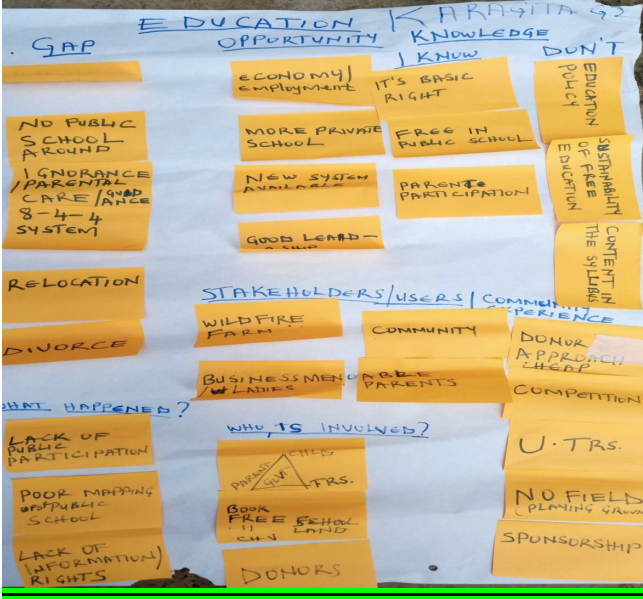 EDUCATION
KARAGITA G2
GAP
NO PUBLIC
SCHOOL
AROUND
IGNORANCE
/PARENTAL
CARE/GUID
ANCE
8-4-4
SYSTEM
RELOCATION
DIVORCE
OPPORTUNITY
ECONOMY/
Employment
MORE PRIVATE
SCHOOL
NEW SYSTEM
AVAILABLE
GOOD LEARD-
KNOWLEDGE
I KNOW
IT'S BASIC
RIGHT
FREE IN
PUBLIC SCHOOL
PARENTS
PARTICIPATION
DON'T
EDUCATION
POLICY
SUSTAINABILITY
OF FREE
EDUCATION
CONTENT IN
THE SYLLIBUS
STAKEHOLDERS/USERS/
WILDFIRE
FARM
COMMUNITY
BUSINESSMEN
/LADIES
ABLE
PARENTS
EXPERIENCE
DONOR
APPROACH
CHEAP
COMPETITION
U.TRS.
NO FIELD
(PLAYING GROUN
SPONSORSHIP
WHAT HAPPENED?
LACK OF
PUBLIC
PARTICIPATION
POOR MAPPING
OF PUBLIC
SCHOOL
LACK OF
INFORMATION/
RIGHTS
WHO IS INVOLVED?
CHLD
PARENT
GOVT
TRS.
BOOK
FREE SCHOOL
LAND
DONORS